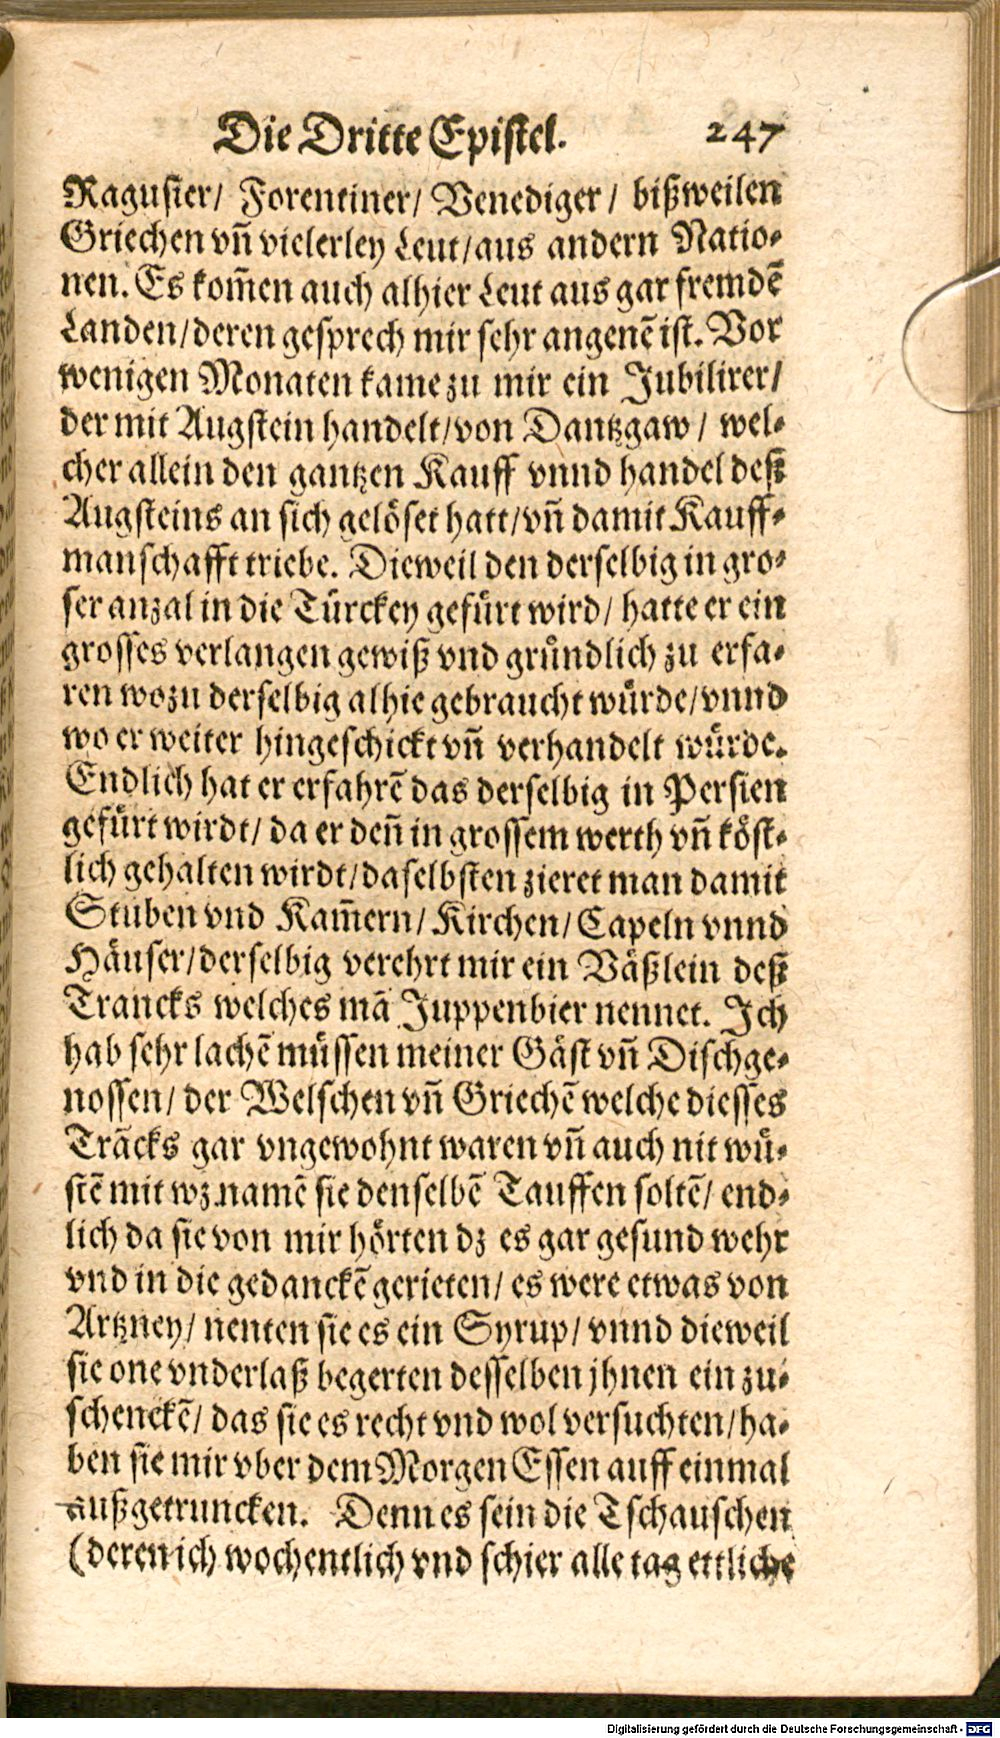 Die Dritte Epistel. 247
Ragusier/ Forentiner/ Venediger/ bißweilen
Griechen vñ vielerley Leut/aus andern Natio-
nen. Es kom̃en auch alhier Leut aus gar fremdẽ
Landen/deren gesprech mir sehr angenẽ ist. Vor
wenigen Monaten kame zu mir ein Jubilirer/
der mit Augstein handelt/von Dantzgaw/ wel-
cher allein den gantzen Kauff vnnd handel deß
Augsteins an sich gelöset hatt/vñ damit Kauff-
manschafft triebe. Dieweil den derselbig in gro-
ser anzal in die Türckey gefürt wird/ hatte er ein
grosses verlangen gewiß vnd gründlich zu erfa-
ren wozu derselbig alhie gebraucht würde/vnnd
wo er weiter hingeschickt vñ verhandelt würde.
Endlich hat er erfahrẽ das derselbig in Persien
gefürt wirdt/ da er den̄ in grossem werth vñ köst-
lich gehalten wirdt/daselbsten zieret man damit
Stuben vnd Kam̃ern/ Kirchen/ Capeln vnnd
Häuser/derselbig verehrt mir ein Väßlein deß
Trancks welches mã Juppenbier nennet. Ich
hab sehr lachẽ müssen meiner Gäst vñ Dischge-
nossen/ der Welschen vñ Griechẽ welche diesses
Trãcks gar vngewohnt waren vñ auch nit wü-
stẽ mit wz namẽ sie denselbẽ Tauffen soltẽ/ end-
lich da sie von mir hörten dz es gar gesund wehr
vnd in die gedanckẽ gerieten/ es were etwas von
Artzney/ nenten sie es ein Syrup/ vnnd dieweil
sie one vnderlaß begerten desselben jhnen ein zu-
schenckẽ/ das sie es recht vnd wol versuchten/ha-
ben sie mir vber dem Morgen Essen auff einmal
außgetruncken. Denn es sein die Tschauschen
(deren ich wochentlich vnd schier alle tag ettliche
Digitalisierung gefördert durch die Deutsche Forschungsgemeinschaft - DFG